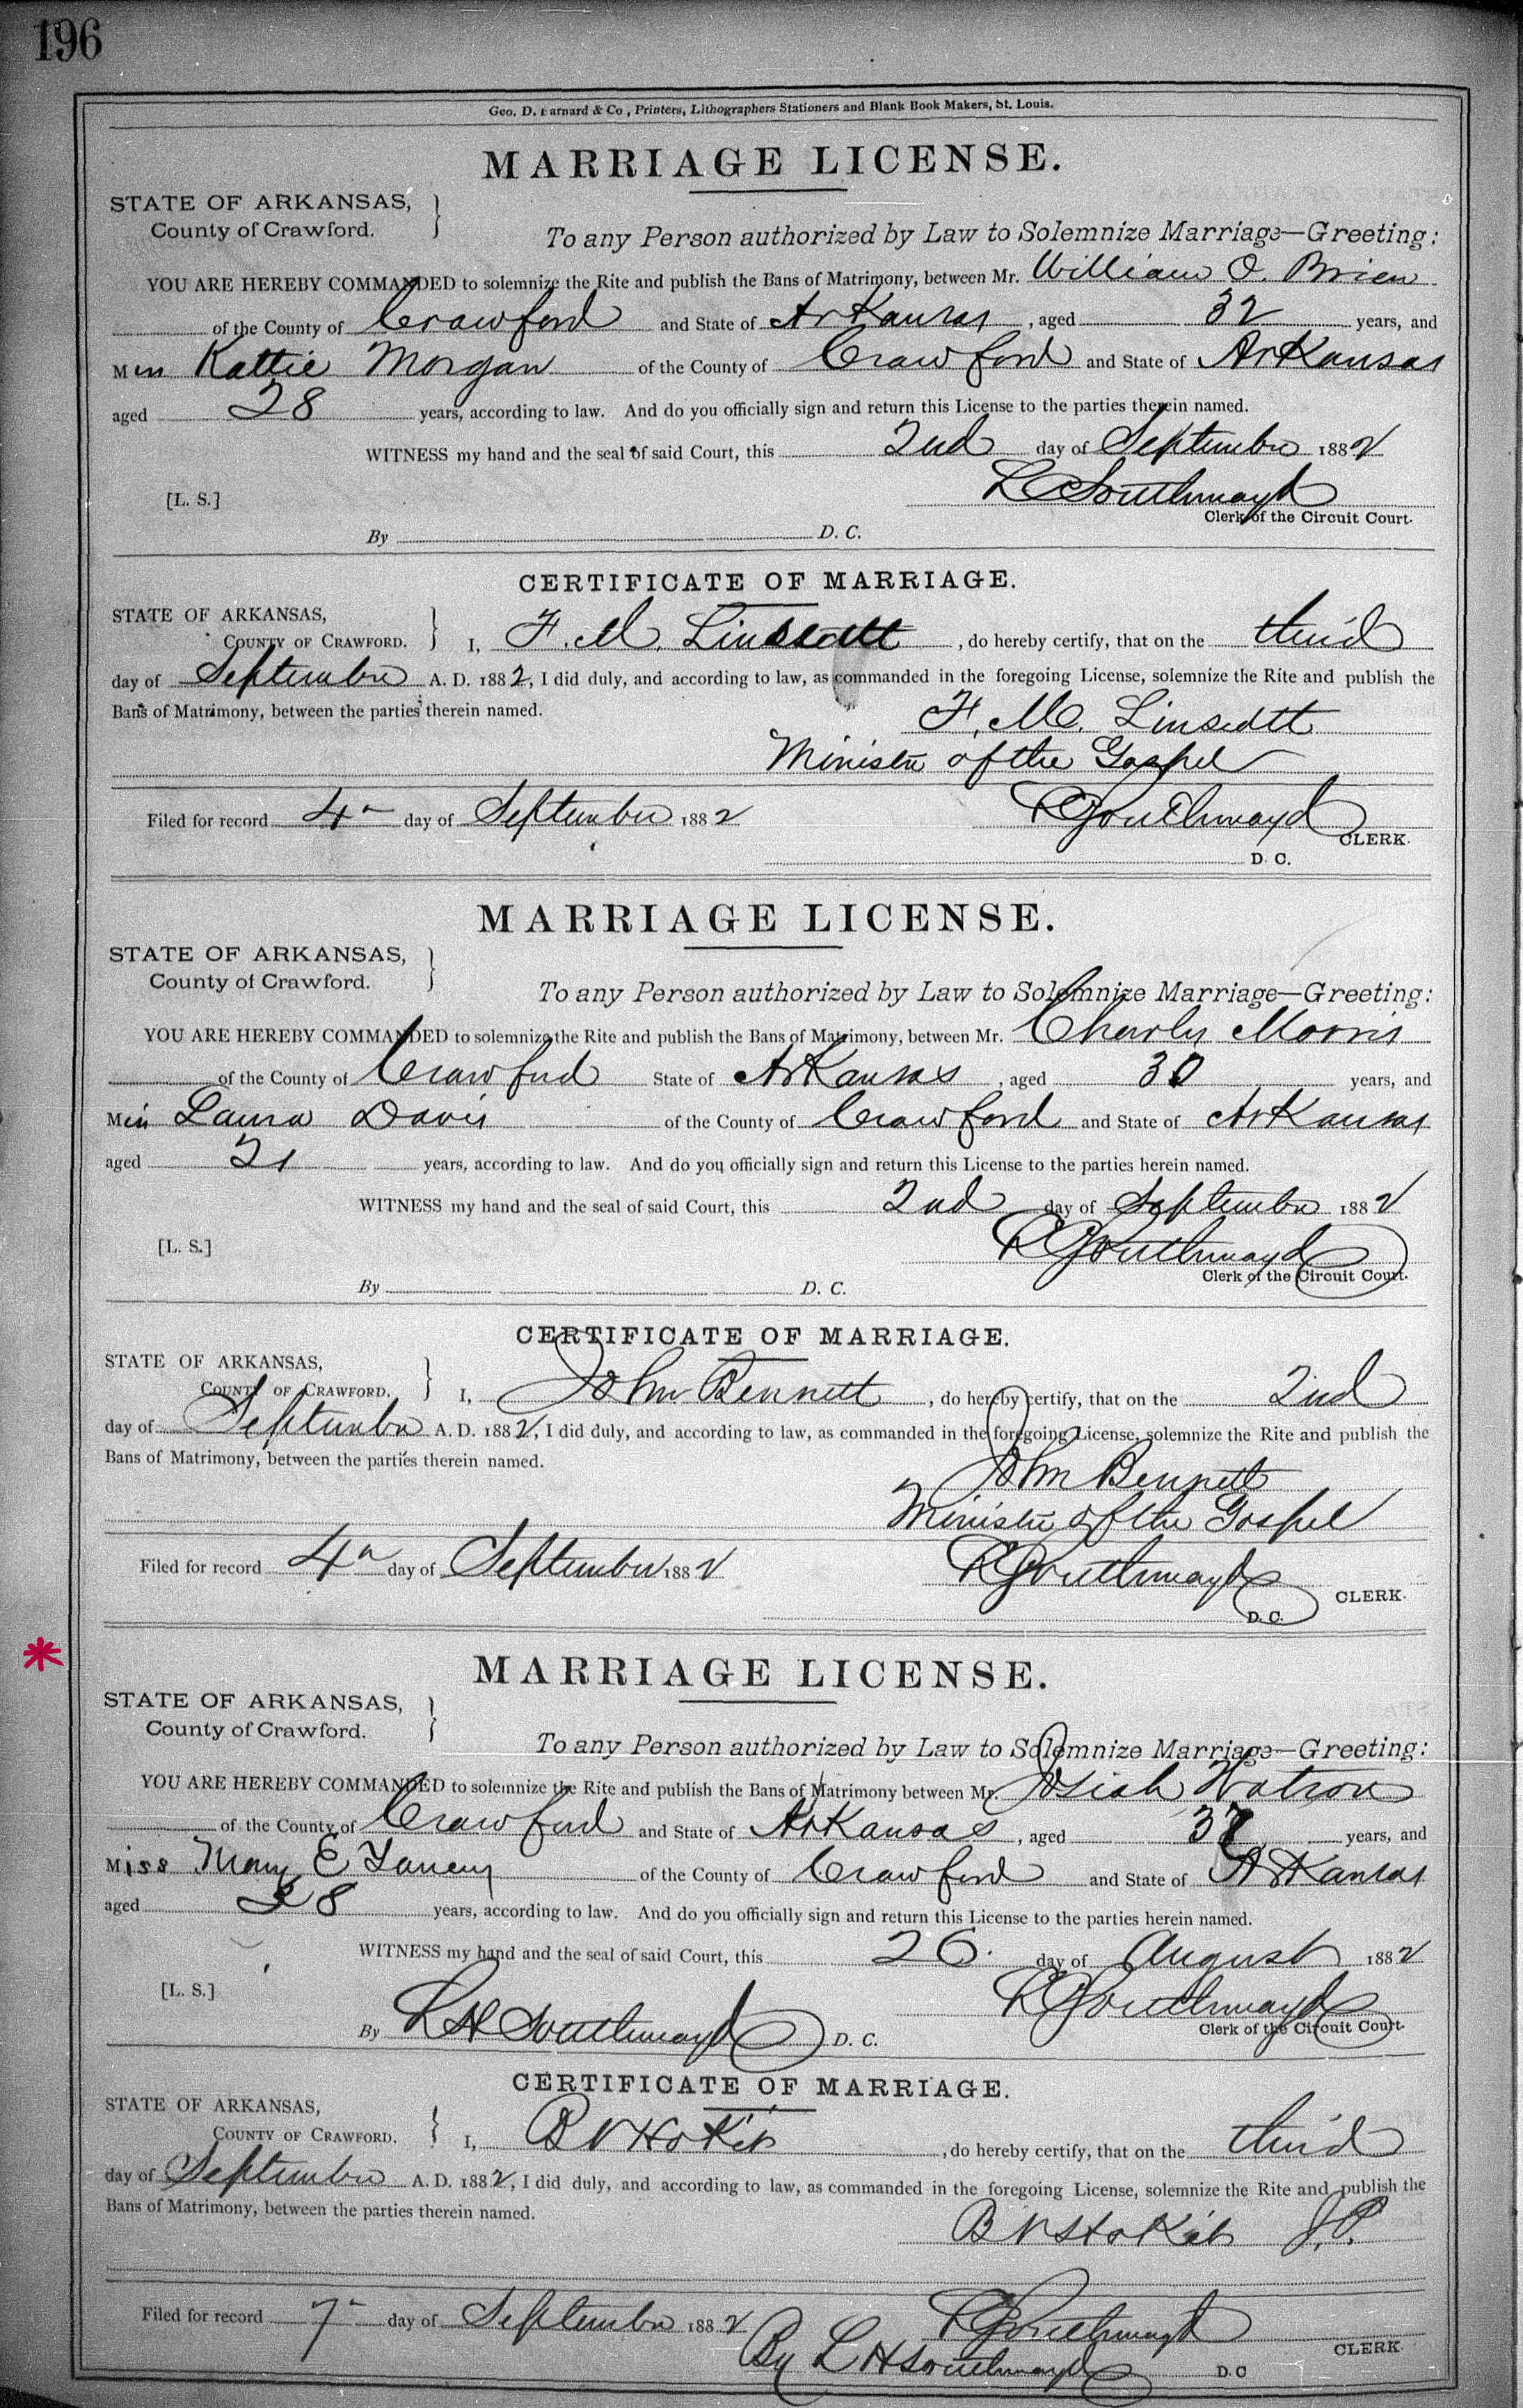 196
Geo. D. Barnard & Co., Printers, Lithographers Stationers and Blank Book Makers, St. Louis.
MARRIAGE LICENSE.
STATE OF ARKANSAS,
County of Crawford.
To any Person authorized by Law to Solemnize Marriage—Greeting:
YOU ARE HEREBY COMMANDED to solemnize the Rite and publish the Bans of Matrimony, between Mr. William O. Brien
of the County of Crawford and State of Arkansas, aged 32 years, and
M Kattie Morgan of the County of Crawford and State of Arkansas
aged 28 years, according to law. And do you officially sign and return this License to the parties therein named.
WITNESS my hand and the seal of said Court, this 2nd day of September 1882
[L. S.] Southmayd
Clerk of the Circuit Court.
By D. C.
CERTIFICATE OF MARRIAGE.
STATE OF ARKANSAS,
COUNTY OF CRAWFORD. I, F. M. , do hereby certify, that on the third
day of September A. D. 1882, I did duly, and according to law, as commanded in the foregoing License, solemnize the Rite and publish the
Bans of Matrimony, between the parties therein named.
F. M.
Minister of the Gospel
Filed for record 4th day of September 1882 Southmayd
CLERK.
D. C.
MARRIAGE LICENSE.
STATE OF ARKANSAS,
County of Crawford.
To any Person authorized by Law to Solemnize Marriage—Greeting:
YOU ARE HEREBY COMMANDED to solemnize the Rite and publish the Bans of Matrimony, between Mr. Charly Morris
of the County of Crawford State of Arkansas, aged 30 years, and
M Laura Davis of the County of Crawford and State of Arkansas
aged 21 years, according to law. And do you officially sign and return this License to the parties herein named.
WITNESS my hand and the seal of said Court, this 2nd day of September 1882
[L. S.] Southmayd
Clerk of the Circuit Court.
By D. C.
CERTIFICATE OF MARRIAGE.
STATE OF ARKANSAS,
COUNTY OF CRAWFORD. I, John Bennett, do hereby certify, that on the 2nd
day of September A. D. 1882, I did duly, and according to law, as commanded in the foregoing License, solemnize the Rite and publish the
Bans of Matrimony, between the parties therein named.
John Bennett
Minister of the Gospel
Filed for record 4th day of September 1882 Southmayd
CLERK.
D. C.
*
MARRIAGE LICENSE.
STATE OF ARKANSAS,
County of Crawford.
To any Person authorized by Law to Solemnize Marriage—Greeting:
YOU ARE HEREBY COMMANDED to solemnize the Rite and publish the Bans of Matrimony between Mr. Josiah Watson
of the County of Crawford and State of Arkansas, aged 37 years, and
Miss Mary E Yancy of the County of Crawford and State of Arkansas
aged 28 years, according to law. And do you officially sign and return this License to the parties herein named.
WITNESS my hand and the seal of said Court, this 26. day of August 1882
[L. S.] Southmayd
Clerk of the Circuit Court.
By L H Southmayd D. C.
CERTIFICATE OF MARRIAGE.
STATE OF ARKANSAS,
COUNTY OF CRAWFORD. I, , do hereby certify, that on the third
day of September A. D. 1882, I did duly, and according to law, as commanded in the foregoing License, solemnize the Rite and publish the
Bans of Matrimony, between the parties therein named.
J. P.
Filed for record 7th day of September 1882 Southmayd
CLERK.
By L H Southmayd D. C